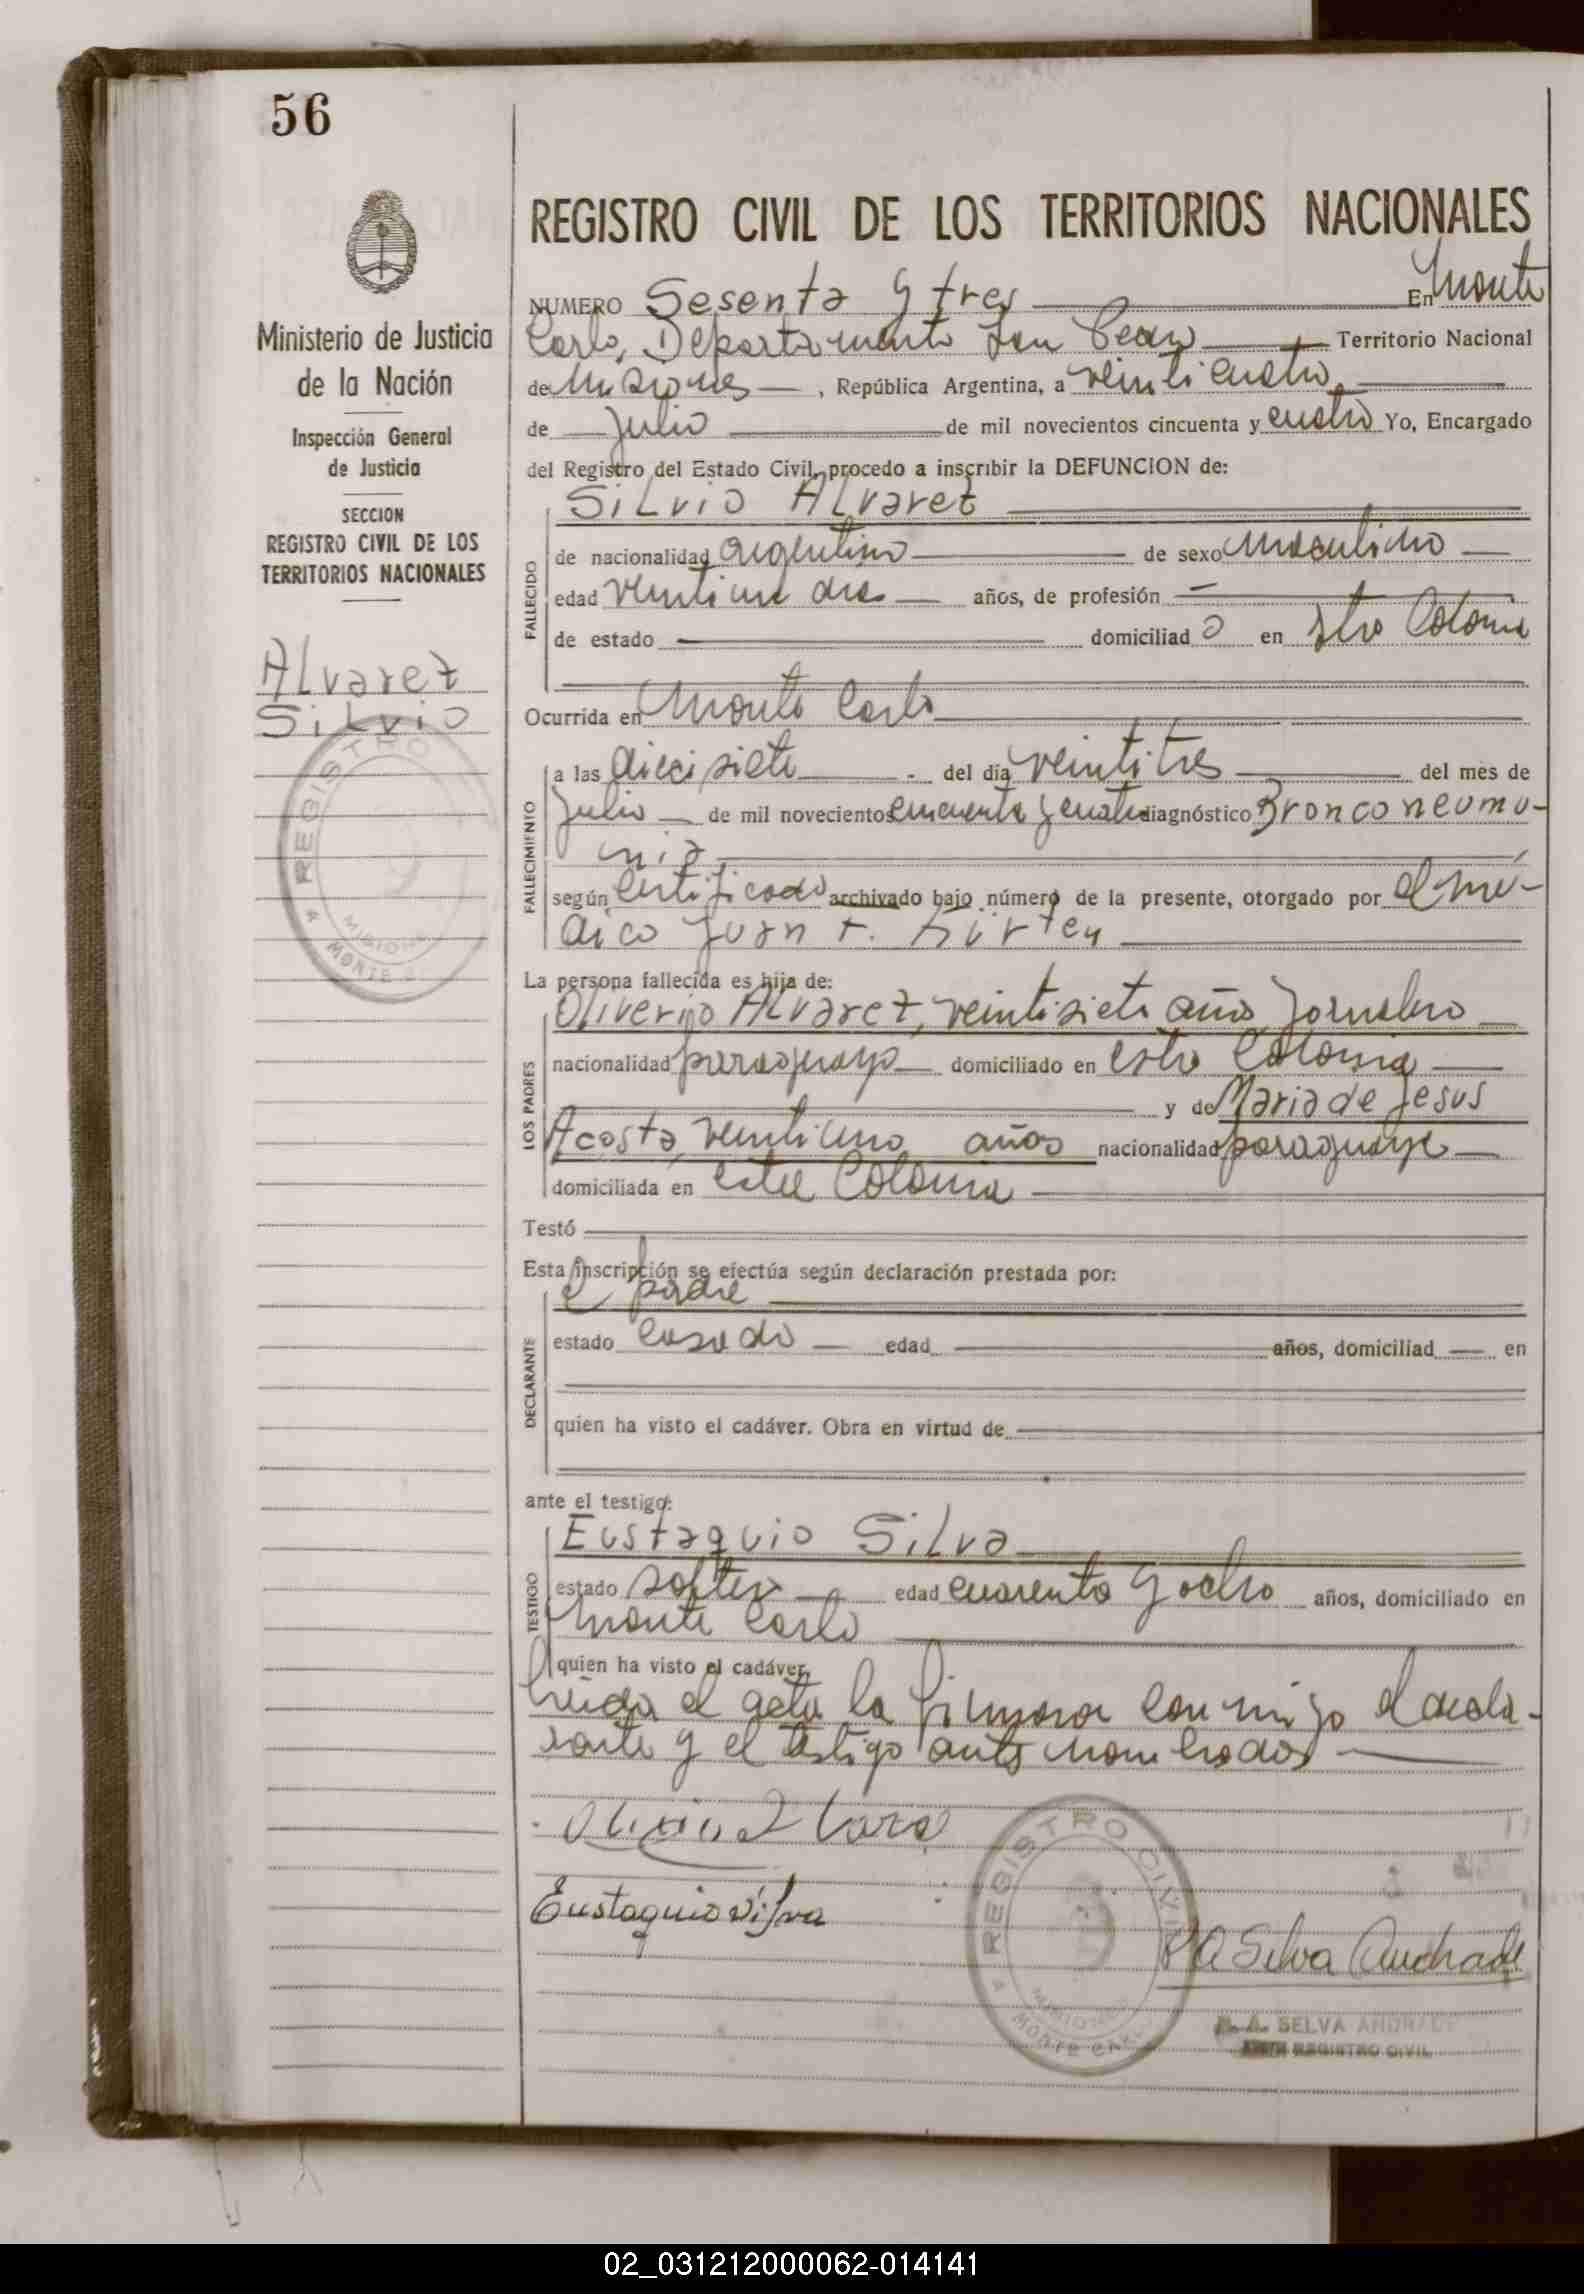 56
Ministerio de Justicia
de la Nación
Inspección General
de Justicia
SECCION
REGISTRO CIVIL DE LOS
TERRITORIOS NACIONALES
Alvarez
Silvio
REGISTRO
MISIONES
MONTE
REGISTRO CIVIL DE LOS TERRITORIOS NACIONALES
NUMERO Sesenta y tres En Monte
Carlo, Departamento Territorio Nacional
de Misiones, República Argentina, a veinticuatro
de Julio de mil novecientos cincuenta y cuatro Yo, Encargado
del Registro del Estado Civil, procedo a inscribir la DEFUNCION de:
Silvio Alvarez
FALLECIDO
de nacionalidad argentino de sexo masculino
edad veintiun dias años, de profesión
de estado domiciliado en Colonia
Ocurrida en Monte Carlo
FALLECIMIENTO
a las diecisiete del día veintitres del mes de
Julio de mil novecientos cincuenta y cuatro diagnóstico Bronconeumo-
nia
según certificado archivado bajo número de la presente, otorgado por el mé-
dico Juan
La persona fallecida es hija de:
LOS PADRES
Oliverio Alvarez, veintisiete años Jornalero
nacionalidad paraguayo domiciliado en esta Colonia
y de Maria de Jesus
Acosta, veintiuno años nacionalidad paraguaya
domiciliada en esta Colonia
Testó
Esta inscripción se efectúa según declaración prestada por:
DECLARANTE
el padre
estado casado edad años, domiciliad en
quien ha visto el cadáver. Obra en virtud de
ante el testigo:
TESTIGO
Eustaquio Silva
estado soltero edad cuarenta y ocho años, domiciliado en
Monte Carlo
quien ha visto el cadáver.
Leida el acta la firmaron conmigo el decla-
rante y el testigo ante nombrados
Eustaquio Silva
REGISTRO CIVIL
MISIONES
MONTE CARLO
Selva Andrade
A. SELVA ANDRADE
REGISTRO CIVIL
02_031212000062-014141